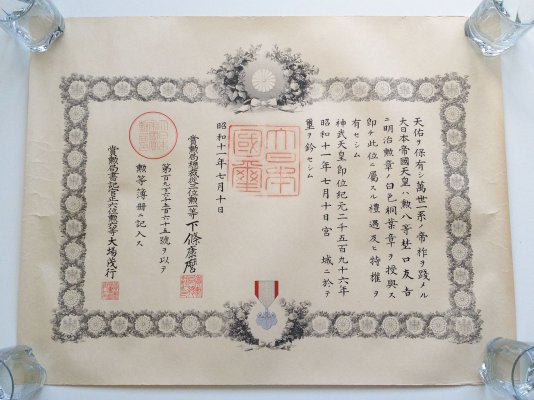 天佑ヲ保有シ萬世一系ノ帝祚ヲ踐メル
大日本帝國天皇ハ勲八等埜口友吉
ニ明治勲章ノ白色桐葉章ヲ授與ス
即チ此位ニ屬スル禮遇及ヒ特權ヲ
有セシム
神武天皇即位紀元二千五百九十六年
昭和十一年七月十日宮城ニ於テ
璽ヲ鈐セシム
大日本
國璽
昭和十一年七月十日
賞勲局總裁從三位勲一等下條康麿
六十五號ヲ以テ
勲等簿册ニ記入ス
賞勲局書記官正六位勲六等大場茂行